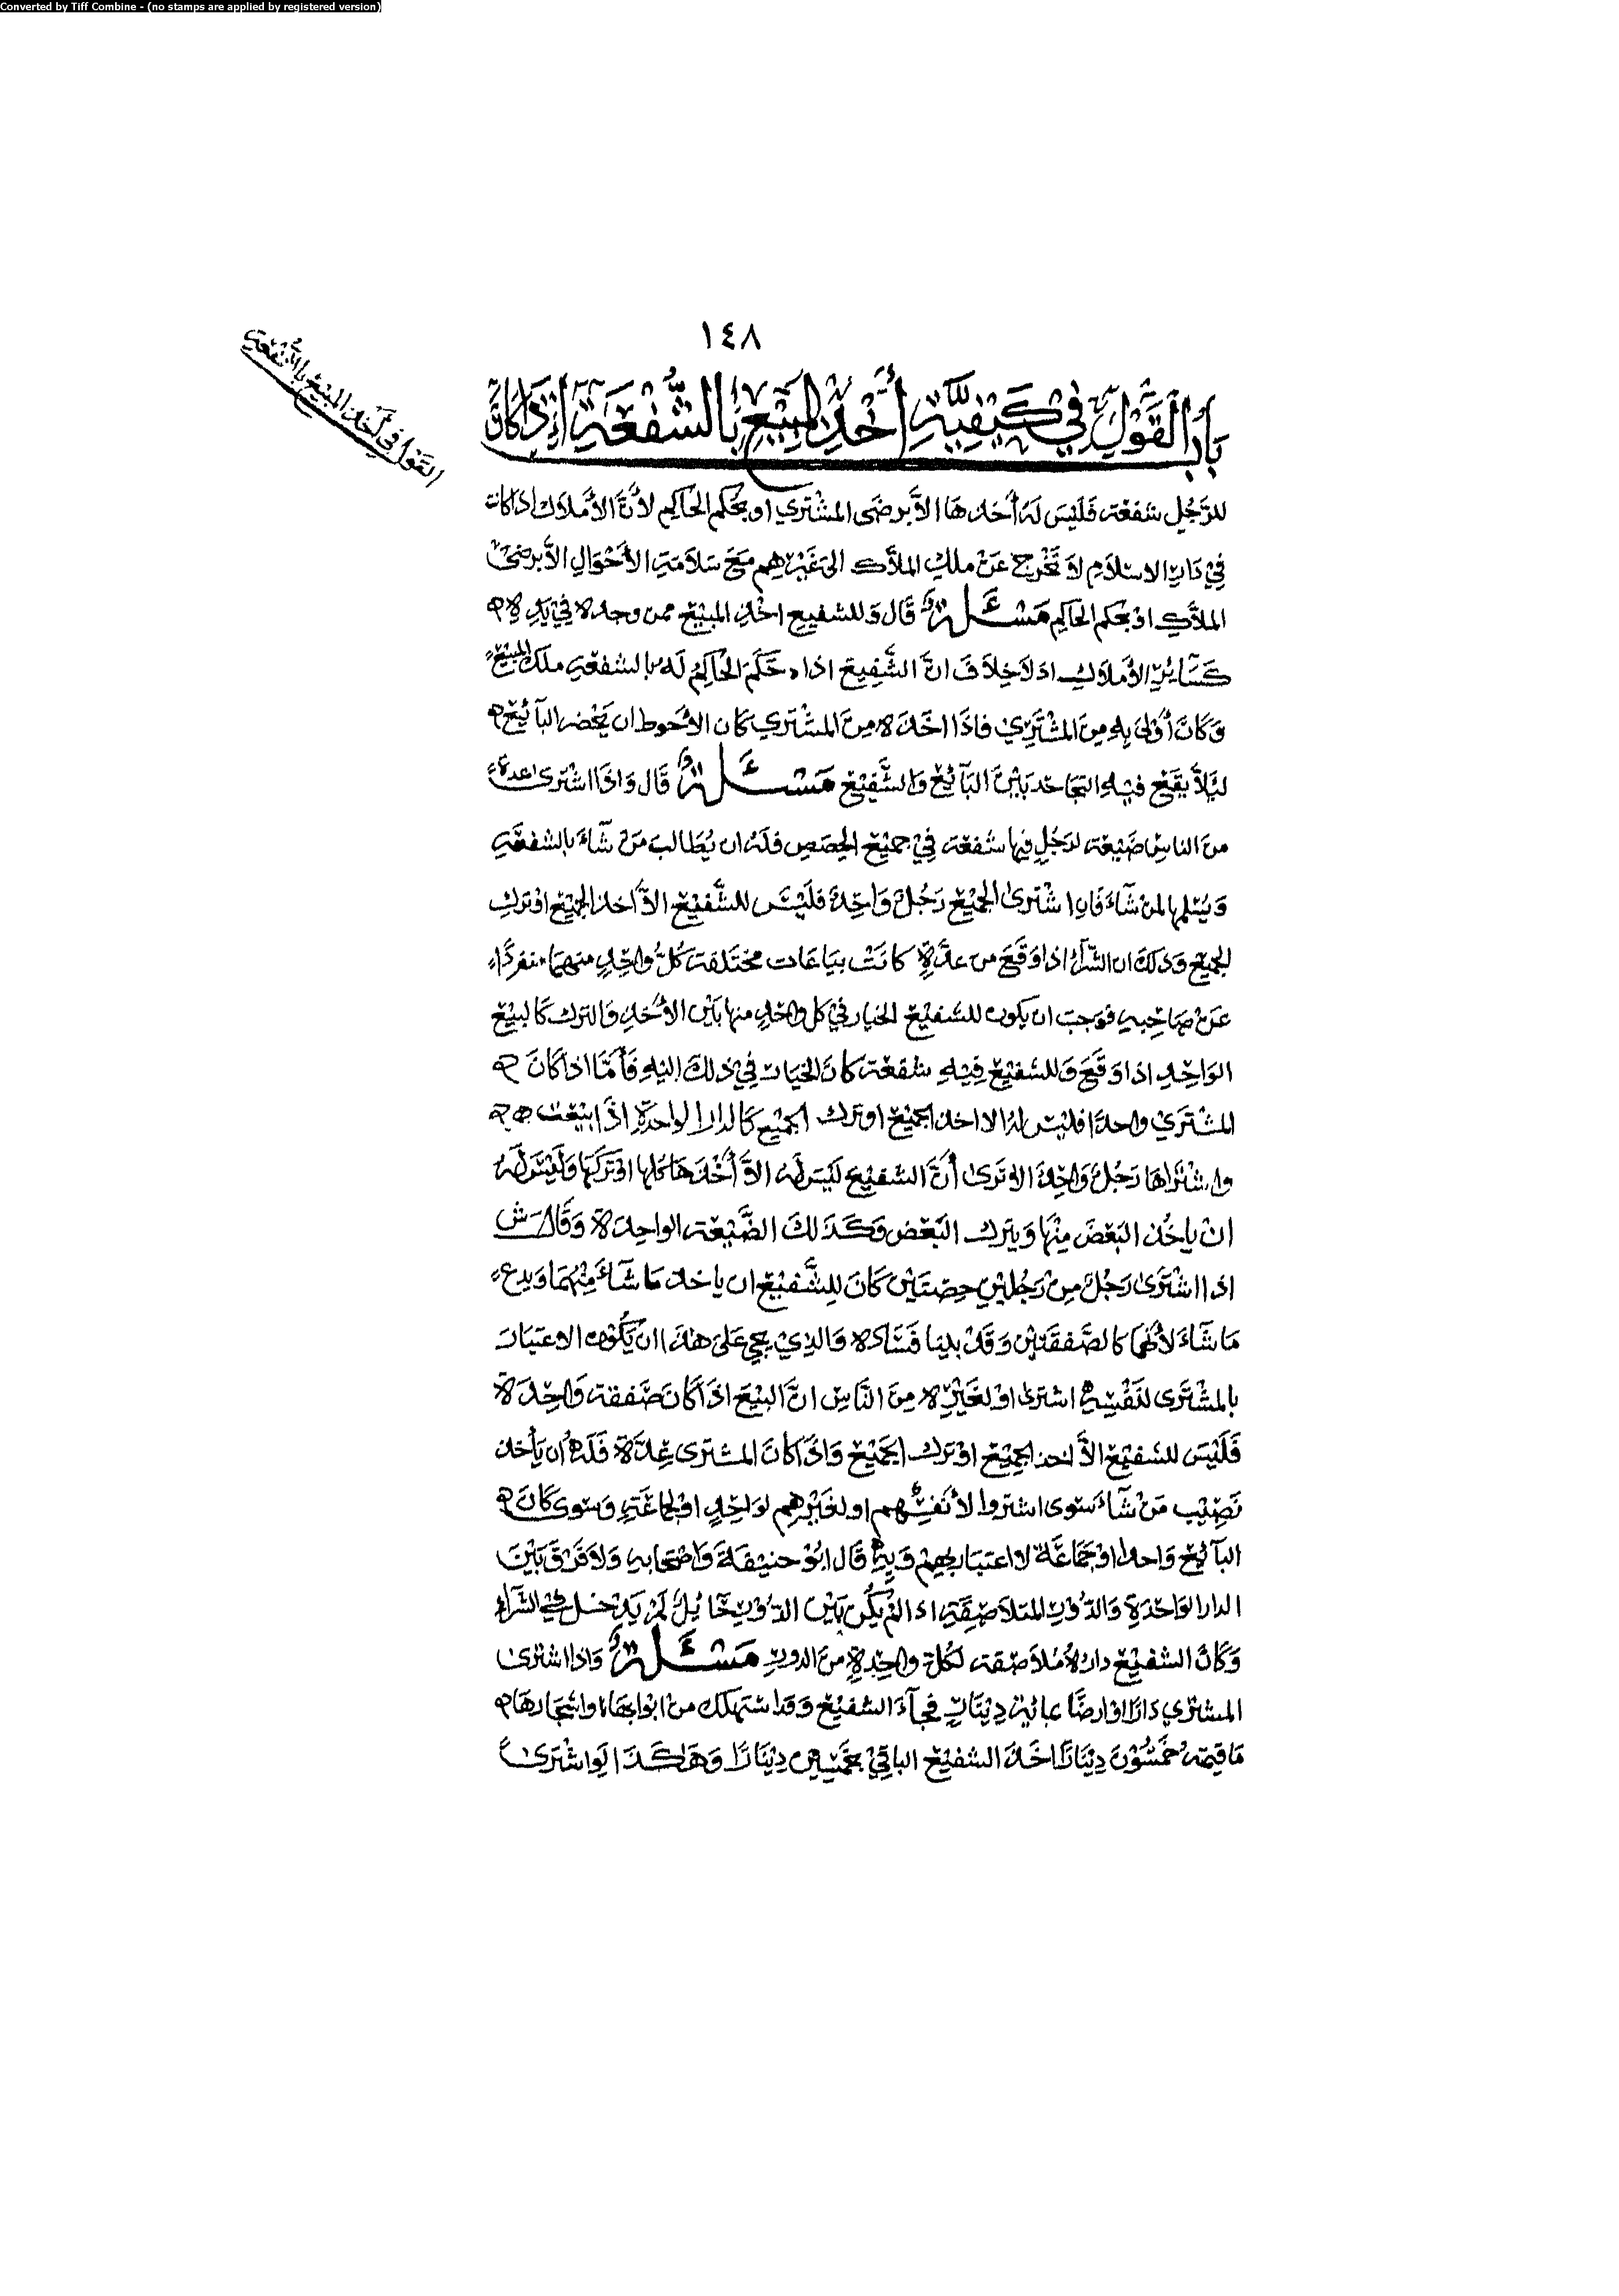 Converted by Tiff Combine - (no stamps are applied by registered version)
١٤٨
القول في أخذ المبيع بالشفعة
باب القول في كيفية أخذ المبيع بالشفعة اذا كان
للرجل شفعة فليس له أخذها الا برضى المشتري او بحكم الحاكم لأن الأملاك اذا كانت
في دار الاسلام لا تخرج عن ملك الملاك الى غيرهم مع سلامة الأحوال الا برضى
الملاك او بحكم الحاكم مسئلة قال وللشفيع اخذ المبيع ممن وجده في يده
كسائر الأملاك اذ لا خلاف ان الشفيع اذا حكم الحاكم له بالشفعة ملك المبيع
وكان أولى به من المشتري فاذا اخذه من المشتري كان الأحوط ان يحضر البآئع
ليلا يقع فيه التجاحد بين البآئع والشفيع مسئلة قال واذا اشترى عدة
من الناس ضيعة لرجل فيها شفعة في جميع الحصص فله ان يطالب من شآء بالشفعة
ويسلمها لمن شآء فان اشترى الجميع رجل واحد فليس للشفيع الا أخذ الجميع او ترك
الجميع وذلك ان الشرآء اذا وقع من عدة كانت بياعات مختلفة كل واحد منهما منفردا
عن صاحبه فوجب ان يكون للشفيع الخيار في كل واحد منها بين الأخذ والترك كالبيع
الواحد اذا وقع وللشفيع فيه شفعة كان الخيار في ذلك اليه فأما اذا كان
المشتري واحدا فليس له الا اخذ الجميع او ترك الجميع كالدار الواحدة اذا ابيعت
واشتراها رجل واحد الا ترى أن الشفيع ليس له الا أخذها كلها او تركها وليس له
ان ياخذ البعض منها ويترك البعض وكذلك الضيعة الواحدة وقال ش
اذا اشترى رجل من رجلين حصتين كان للشفيع ان ياخذ ما شآء منهما ويدع
ما شآء لأنهما كالصفقتين وقد بينا فساده والذي يجي على هذا ان يكون الاعتبار
بالمشترى لنفسه اشترى او لغيره من الناس ان البيع اذا كان صفقة واحدة
فليس للشفيع الا اخذ الجميع او ترك الجميع واذا كان المشترى عدة فله أن يأخذ
نصيب من شآء سوى اشتروا لأنفسهم او لغيرهم لواحد او لجماعة وسوى كان
البآئع واحدا او جماعة لا اعتبار بهم وبه قال ابو حنيفة واصحابه ولا فرق بين
الدار الواحدة والدور المتلاصقة اذا لم يكن بين الدور حايل لم يدخل في الشرآء
وكان الشفيع داره ملاصقة لكل واحدة من الدور مسئلة واذا اشترى
المشتري دارا او ارضا بمائة دينار فجآء الشفيع وقد استهلك من ابوابها واشجارها
ما قيمته خمسون دينارا اخذ الشفيع الباقي بخمسين دينارا وهكذا لو اشترى